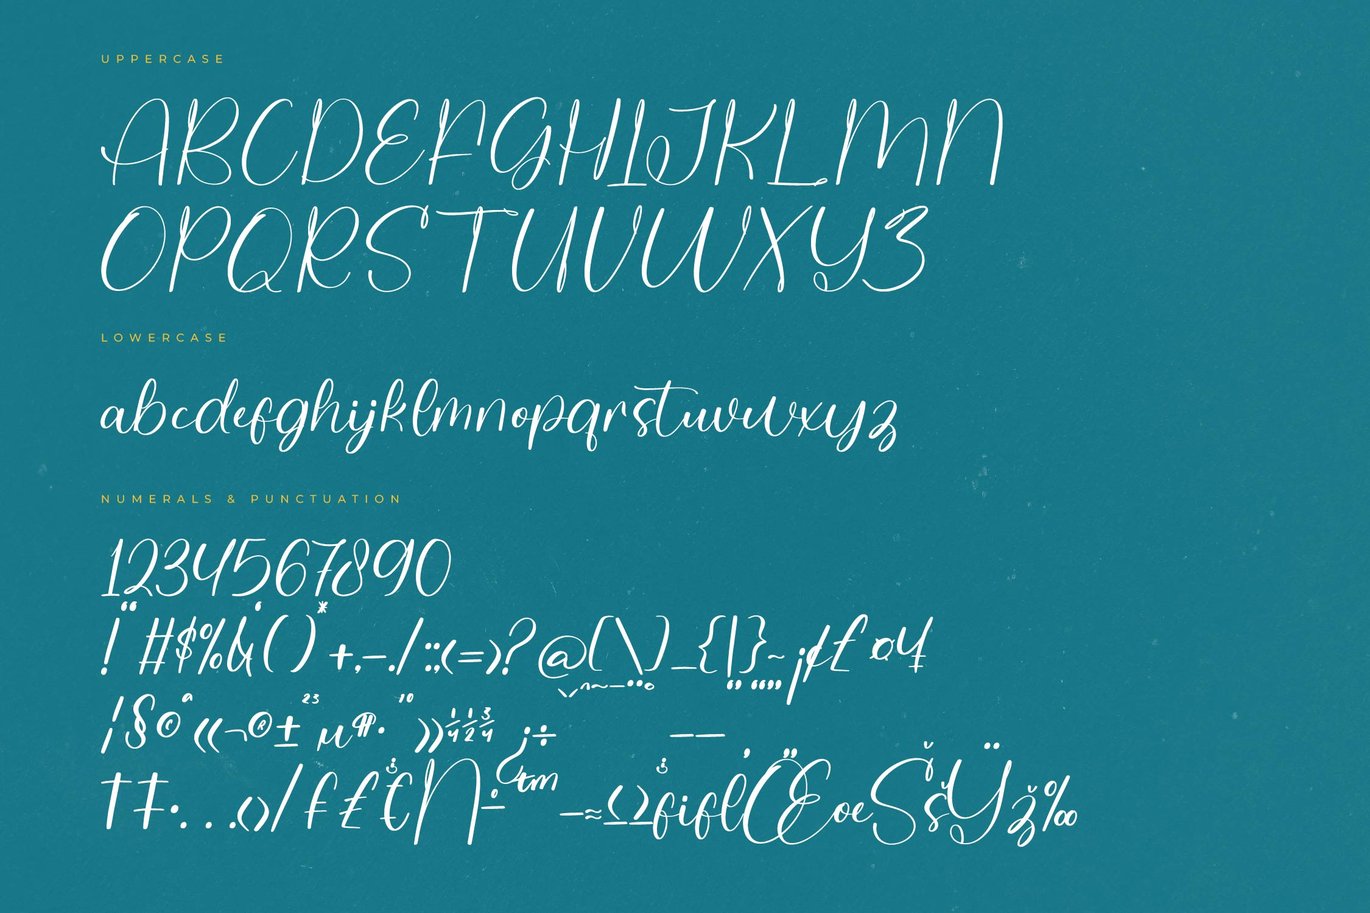 UPPERCASE
ABCDEFGHIJKLMN
OPQRSTUVWXYZ
LOWERCASE
abcdefghijklmnopqrstuvwxyz
NUMERALS & PUNCTUATION
1234567890
!“#$%&‘()*+,-./:;<=>?@[\]_{|}~¡¢£¤¥
¦§©ª«¬®±²³µ¶·º»¼½¾¿÷
†‡•…‹›⁄₣₤€∩™−≈≤≥fiflŒœŠšŸž‰